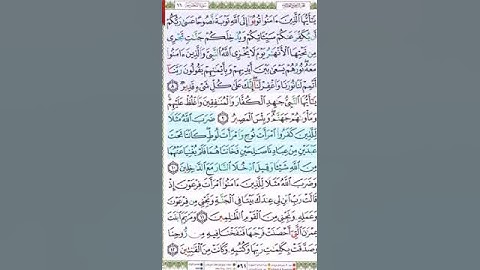 يَـٰٓأَيُّهَا ٱلَّذِينَ ءَامَنُوا۟ تُوبُوٓا۟ إِلَى ٱللَّهِ تَوْبَةً نَّصُوحًا عَسَىٰ رَبُّكُمْ
أَن يُكَفِّرَ عَنكُمْ سَيِّـَٔاتِكُمْ وَيُدْخِلَكُمْ جَنَّـٰتٍ تَجْرِى
مِن تَحْتِهَا ٱلْأَنْهَـٰرُ يَوْمَ لَا يُخْزِى ٱللَّهُ ٱلنَّبِىَّ وَٱلَّذِينَ ءَامَنُوا۟
مَعَهُۥ نُورُهُمْ يَسْعَىٰ بَيْنَ أَيْدِيهِمْ وَبِأَيْمَـٰنِهِمْ يَقُولُونَ رَبَّنَآ
أَتْمِمْ لَنَا نُورَنَا وَٱغْفِرْ لَنَآ إِنَّكَ عَلَىٰ كُلِّ شَىْءٍ قَدِيرٌ ٨
يَـٰٓأَيُّهَا ٱلنَّبِىُّ جَـٰهِدِ ٱلْكُفَّارَ وَٱلْمُنَـٰفِقِينَ وَٱغْلُظْ عَلَيْهِمْ
وَمَأْوَىٰهُمْ جَهَنَّمُ وَبِئْسَ ٱلْمَصِيرُ ٩ ضَرَبَ ٱللَّهُ مَثَلًا
لِّلَّذِينَ كَفَرُوا۟ ٱمْرَأَتَ نُوحٍ وَٱمْرَأَتَ لُوطٍ كَانَتَا تَحْتَ
عَبْدَيْنِ مِنْ عِبَادِنَا صَـٰلِحَيْنِ فَخَانَتَاهُمَا فَلَمْ يُغْنِيَا عَنْهُمَا
مِنَ ٱللَّهِ شَيْـًٔا وَقِيلَ ٱدْخُلَا ٱلنَّارَ مَعَ ٱلدَّٰخِلِينَ ١٠
وَضَرَبَ ٱللَّهُ مَثَلًا لِّلَّذِينَ ءَامَنُوا۟ ٱمْرَأَتَ فِرْعَوْنَ إِذْ
قَالَتْ رَبِّ ٱبْنِ لِى عِندَكَ بَيْتًا فِى ٱلْجَنَّةِ وَنَجِّنِى مِن فِرْعَوْنَ
وَعَمَلِهِۦ وَنَجِّنِى مِنَ ٱلْقَوْمِ ٱلظَّـٰلِمِينَ ١١ وَمَرْيَمَ ٱبْنَتَ
عِمْرَٰنَ ٱلَّتِىٓ أَحْصَنَتْ فَرْجَهَا فَنَفَخْنَا فِيهِ مِن رُّوحِنَا
وَصَدَّقَتْ بِكَلِمَـٰتِ رَبِّهَا وَكُتُبِهِۦ وَكَانَتْ مِنَ ٱلْقَـٰنِتِينَ ١٢
٥٦١